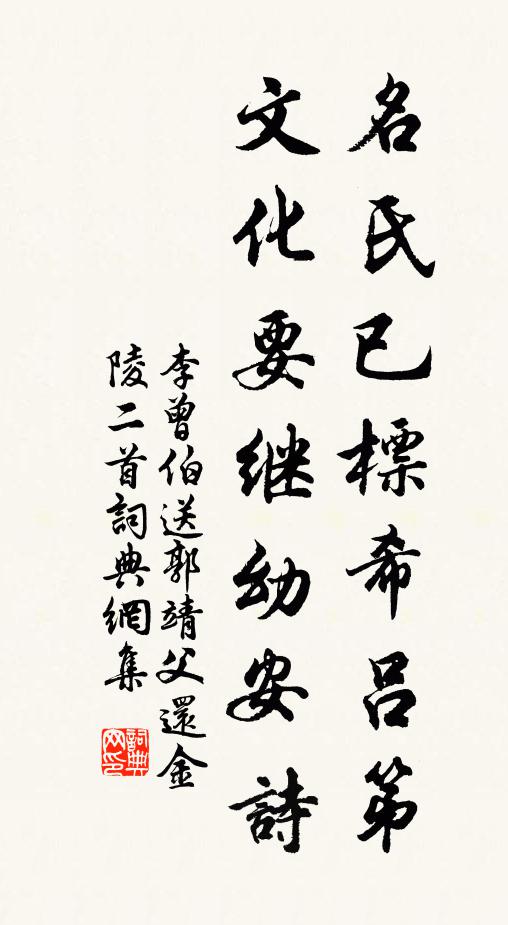 名氏已標希呂第
文化要継幼安詩
李曾伯送郭靖父還金
陵二首詞典網集
詞典
网印